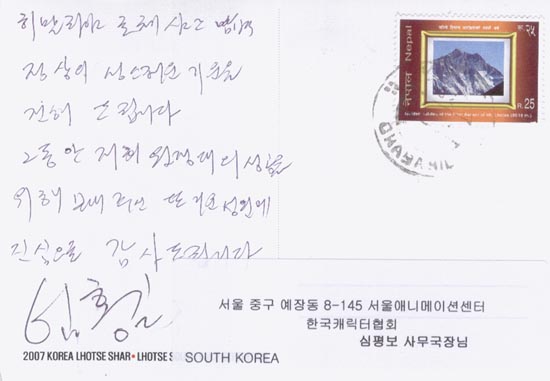 히말라야 로체사르
정상의 상스러운 기운을
전해 드립니다
그동안 저희 원정대의 성공을
위해 보내 주신 뜨거운 성원에
진심으로 감사드립니다
नेपाल Nepal
रू. २५
R. 25
서울 중구 예장동 8-145 서울애니메이션센터
한국캐릭터협회
심평보 사무국장님
2007 KOREA LHOTSE SHAR • LHOTSE S
SOUTH KOREA